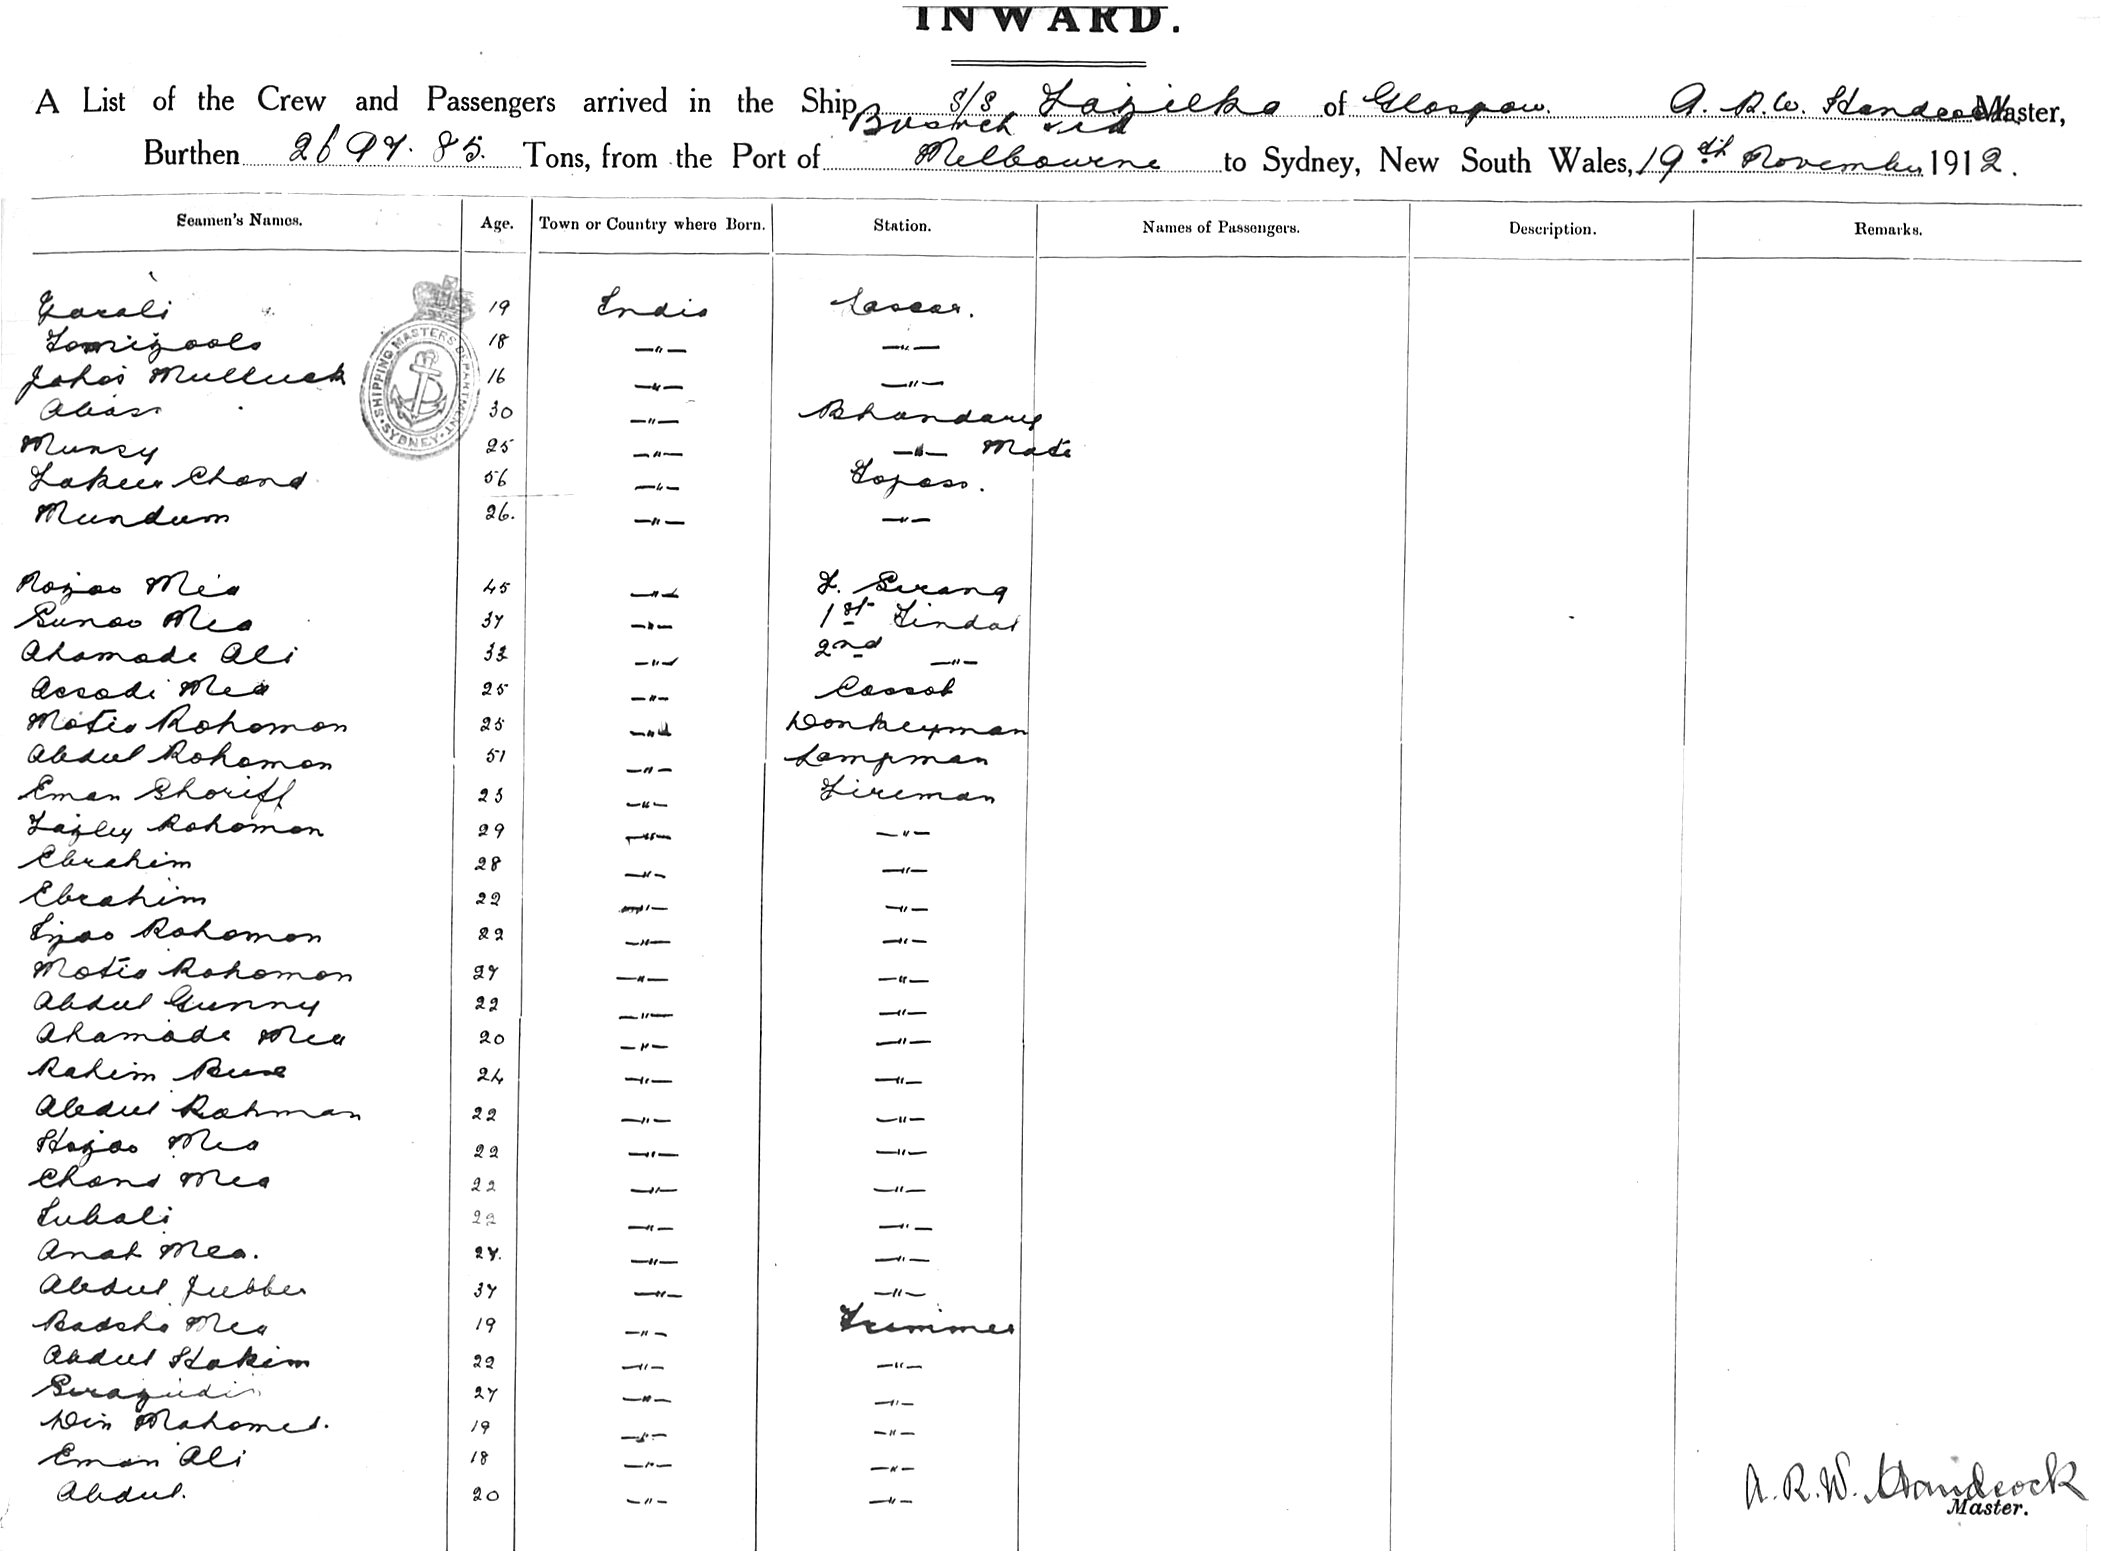 INWARD.
A List of the Crew and Passengers arrived in the Ship S/S Fazilka of Glasgow. A. R. W. Handcock Master,
Burthen 2697.85. Tons, from the Port of Melbourne to Sydney, New South Wales, 19th November 1912.
Seamen's Names. Age. Town or Country where Born. Station. Names of Passengers. Description. Remarks.
SHIPPING MASTERS DEPARTMENT SYDNEY
19 India Lascar.
18 —"— —"—
Mulluck 16 —"— —"—
30 —"— Bhandary
Muncy 25 —"— —"— Mate
Chand 56 —"— Topass.
Mundum 26. —"— —"—
Mia 45 —"— F. Serang
Mea 37 —"— 1st Tindal
Ahamade Ali 33 —"— 2nd —"—
Assadi Mea 25 —"— Cassab
Rohomon 25 —"— Donkeyman
Abdul Rohomon 51 —"— Lampman
Eman Shoriff 25 —"— Fireman
Fazley Rohomon 29 —"— —"—
Ebrahim 28 —"— —"—
Ebrahim 22 —"— —"—
Rohomon 22 —"— —"—
Rohomon 27 —"— —"—
Abdul Gunny 22 —"— —"—
Ahamade Mea 20 —"— —"—
Rahim Buse 24 —"— —"—
Abdul Rahman 22 —"— —"—
Mea 22 —"— —"—
Chand Mea 22 —"— —"—
22 —"— —"—
Anat Mea. 27. —"— —"—
Abdul Jubber 37 —"— —"—
Badsha Mea 19 —"— Trimmer
Abdul Hakim 22 —"— —"—
27 —"— —"—
Din Mahomed. 19 —"— —"—
Eman Ali 18 —"— —"—
Abdul. 20 —"— —"—
A. R. W. Handcock
Master.